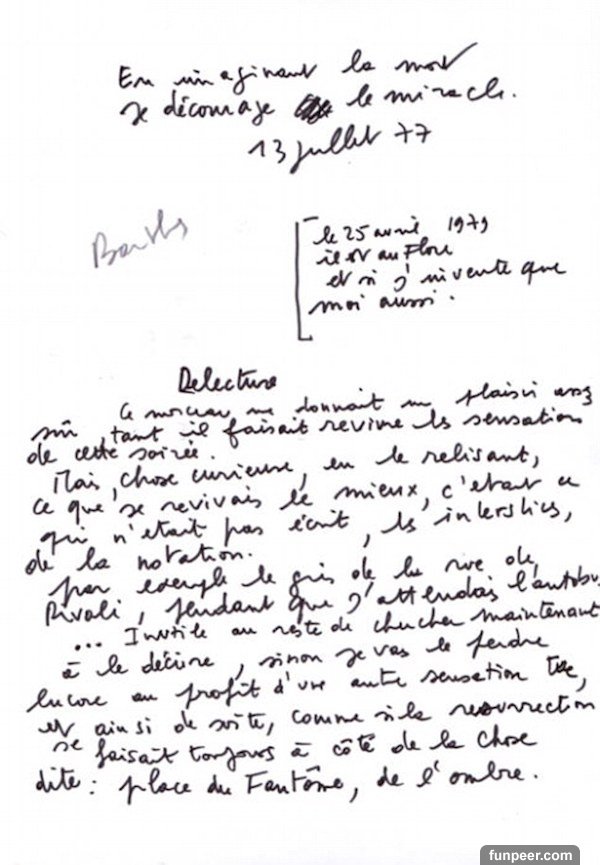 En imaginant la mort
je décourage le miracle.
13 juillet 77
Barthes
le 25 avril 1979
il est au Flore
et si j'invente que
moi aussi.
Delecture
Ce morceau me donnait un plaisir assez
sûr, tant il faisait revivre ls sensations
de cette soirée.
Mais, chose curieuse, en le relisant,
ce que je revivais le mieux, c'était ce
qui n'était pas écrit, ls interstics,
de la notation.
par exemple le gris de la rue de
Rivoli, pendant que j'attendais l'autobus
... Inutile au reste de chercher maintenant
à le décrire, sinon je vais le perdre
encore au profit d'une autre sensation tue,
et ainsi de suite, comme si la resurrection
se faisait toujours à côté de la chose
dite : place du Fantôme, de l'ombre.
funpeer.com